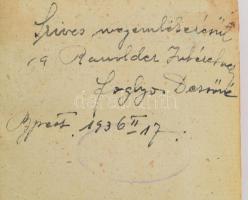 Szives megemlékezésül
a Ranolder Intézetnek
Foglyo Dezsőné
Bpest. 1936 II 17.